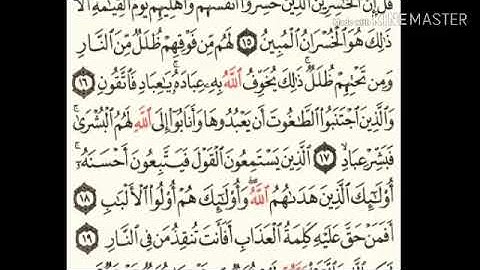 قُلْ إِنَّ الْخَٰسِرِينَ الَّذِينَ خَسِرُوٓا۟ أَنفُسَهُمْ وَأَهْلِيهِمْ يَوْمَ الْقِيَٰمَةِ أَلَا
Made with KINEMASTER
ذَٰلِكَ هُوَ الْخُسْرَانُ الْمُبِينُ ١٥ لَهُم مِّن فَوْقِهِمْ ظُلَلٌ مِّنَ النَّارِ
وَمِن تَحْتِهِمْ ظُلَلٌ ذَٰلِكَ يُخَوِّفُ اللَّهُ بِهِۦ عِبَادَهُۥ يَٰعِبَادِ فَاتَّقُونِ ١٦
وَالَّذِينَ اجْتَنَبُوا۟ الطَّٰغُوتَ أَن يَعْبُدُوهَا وَأَنَابُوٓا۟ إِلَى اللَّهِ لَهُمُ الْبُشْرَىٰ
فَبَشِّرْ عِبَادِ ١٧ الَّذِينَ يَسْتَمِعُونَ الْقَوْلَ فَيَتَّبِعُونَ أَحْسَنَهُۥٓ
أُو۟لَٰٓئِكَ الَّذِينَ هَدَىٰهُمُ اللَّهُ وَأُو۟لَٰٓئِكَ هُمْ أُو۟لُوا۟ الْأَلْبَٰبِ ١٨
أَفَمَنْ حَقَّ عَلَيْهِ كَلِمَةُ الْعَذَابِ أَفَأَنتَ تُنقِذُ مَن فِى النَّارِ ١٩